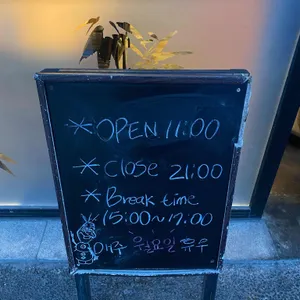 *OPEN 11:00
*Close 21:00
*Break time
*15:00~17:00
매주 월요일 휴무